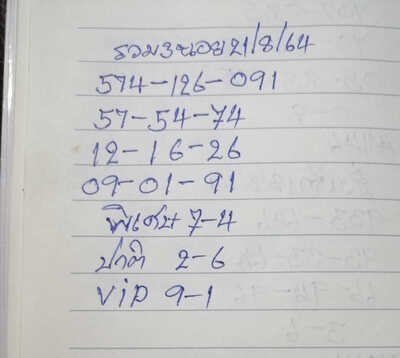 รวม3หนอย21/8/64
574-126-091
57-54-74
12-16-26
09-01-91
พิเศษ 7-4
ปกติ 2-6
ViP 9-1